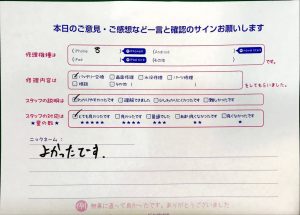 本日のご意見・ご感想など一言と確認のサインお願いします
修理機種は
iPhone 8
Android
iPad
その他
修理内容は
バッテリー交換 画面修理 水没修理 パーツ修理
その他
をしてもらいました。
スタッフの説明は
わかりやすかったです 理解できました 少しわかりにくかったです 難しかったです
スタッフの対応は
とても良かったです 良かったです 普通でした あまり良くなかったです 良くなかったです
★星の数★
★★★★★ ★★★★ ★★★ ★★ ★
ニックネーム：
よかったです.
無事に直って良かったです。ありがとうございました